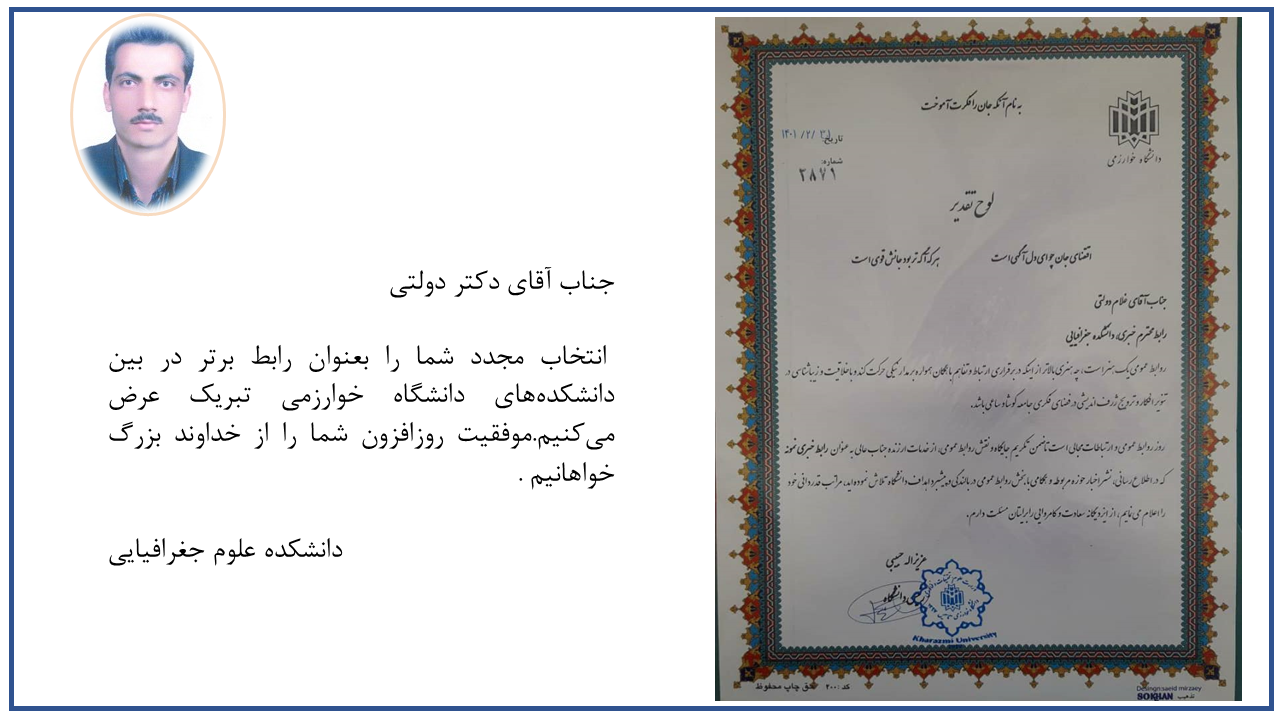 جناب آقای دکتر دولتی
انتخاب مجدد شما را بعنوان رابط برتر در بین
دانشکده‌های دانشگاه خوارزمی تبریک عرض
می‌کنیم.موفقیت روزافزون شما را از خداوند بزرگ
خواهانیم .
دانشکده علوم جغرافیایی
به نام آنکه جان را فکرت آموخت
دانشگاه خوارزمی
تاریخ: ۱۴۰۱/۲/۳۱
شماره:
۲۸۷۱
لوح تقدیر
اقتضای جان چو ای دل آگهی است هر که آگه تر بود جانش قوی است
جناب آقای غلام دولتی
رابط محترم خبری، دانشکده جغرافیایی
روابط عمومی یک هنر است، چه هنری بالاتر از اینکه در برقراری ارتباط و تفاهم با همگان همواره بر مدار نیکی حرکت کند و با خلاقیت و زیباشناسی در
تنویر افکار و ترویج ژرف اندیشی در فضای فکری جامعه کوشا و ساعی باشد.
روز روابط عمومی و ارتباطات مجالی است تا ضمن تکریم جایگاه و نقش روابط عمومی، از خدمات ارزنده جناب عالی به عنوان رابط خبری نمونه
که در اطلاع رسانی، نشر اخبار حوزه مربوطه و همگامی با بخش روابط عمومی در بالندگی و پیشبرد اهداف دانشگاه تلاش نموده اید، مراتب قدردانی خود
را اعلام می نمایم، از ایزد یگانه سعادت و کامروایی را برایتان مسئلت دارم.
عزیزاله حبیبی
دانشگاه
Kharazmi University
کد : ۲۰۰ حق چاپ محفوظ
Desingn:saeid mirzaey
تذهیب SOKHAN